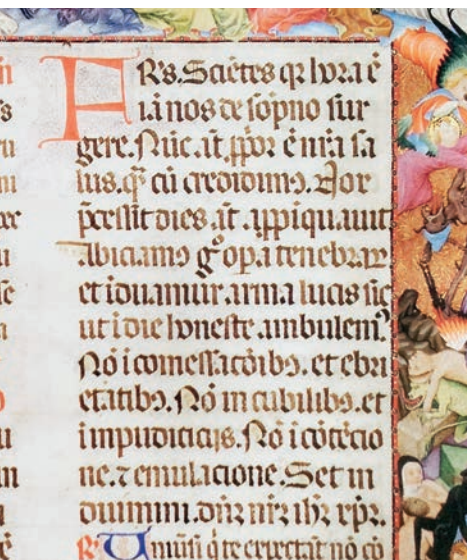 FRēs. Sciētes qꝛ hora ē
iā nos de sōpno sur
gere. Nūc. aūt. ꝓpōr ē nr̄a sa
lus. q̄ꝫ cū credidimꝰ. Nox
p̄cessit dies. aūt. apꝓpiquauit
Abiciamꝰ gͦ opa tenebraꝝ
et iduamur. arma lucis sic
ut i die honeste. ambulemꝰ.
Nō i comessatōibꝰ. et ebri
etatibꝰ. Nō in cubilibꝰ. et
i impudiciciis. Nō i cōtēcio
ne. ⁊ emulacione. Set in
duimini. dn̄ꝫ nr̄ꝫ ih̄ꝫ xp̄ꝫ.
R̃ Uniūsi q̇ te expectāt nō cō